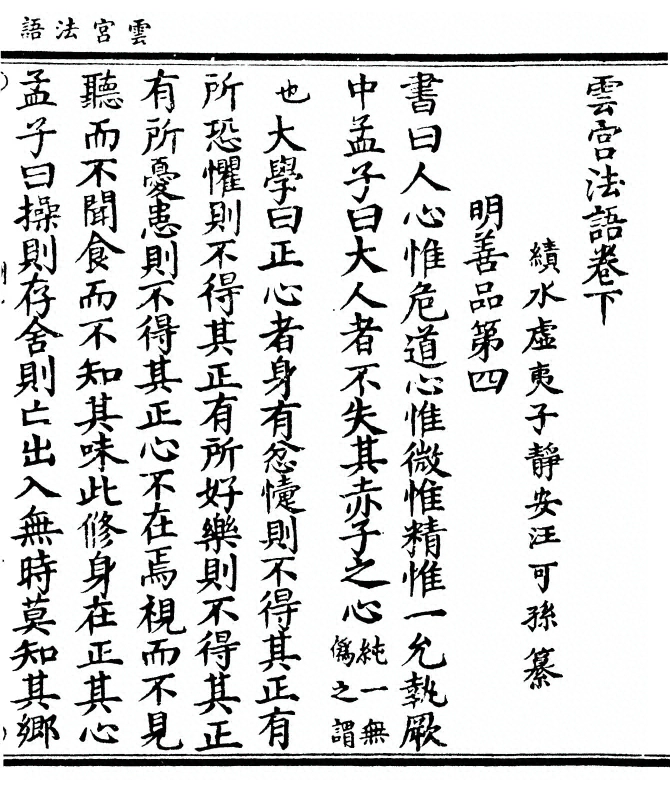 雲宮法語
雲宮法語卷下
績水虛夷子靜安汪可孫纂
明善品第四
書曰人心惟危道心惟微惟精惟一允執厥
中孟子曰大人者不失其赤子之心純一無僞之謂
也大學曰正心者身有忿懥則不得其正有
所恐懼則不得其正有所好樂則不得其正
有所憂患則不得其正心不在焉視而不見
聽而不聞食而不知其味此修身在正其心
孟子曰操則存舍則亡出入無時莫知其鄉